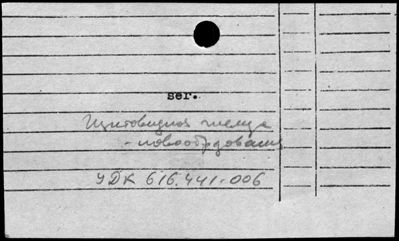 ser.
Щитовидная железа
- новообразования
УДК 616.441-006